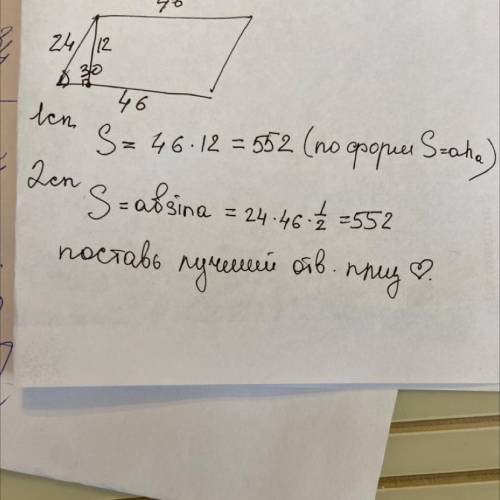 46
24
12
30
46
1сп
S = 46 · 12 = 552 (по форм S=aha)
2сп
S = absina = 24 · 46 · 1/2 = 552
поставь лучший отв. плиз ♡.